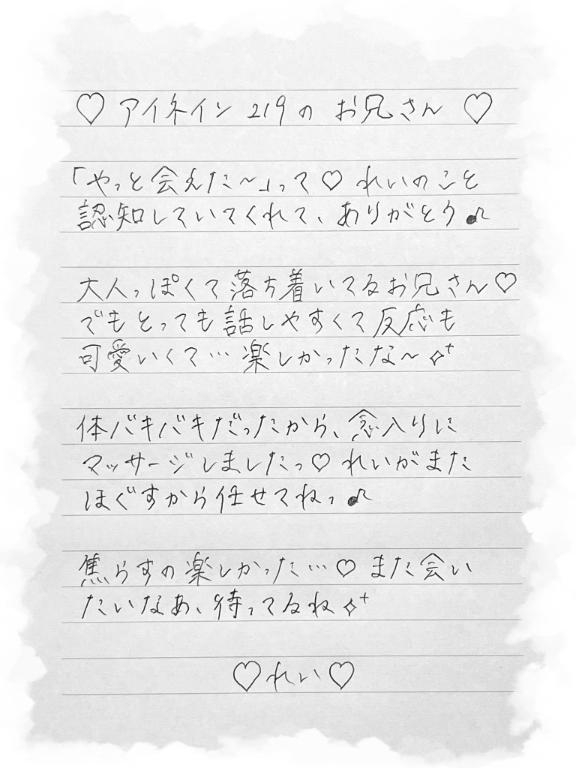 ♡ アイネイン 219の お兄さん ♡
「やっと会えた〜」って♡ れいのこと
認知していてくれて、ありがとう♪
大人っぽくて落ち着いてるお兄さん♡
でもとっても話しやすくて反応も
可愛いくて… 楽しかったな〜✧⁺
体バキバキだったから、念入りに
マッサージしましたっ♡ れいがまた
ほぐすから任せてねっ♪
焦らすの楽しかった…♡ また会い
たいなあ、待ってるね✧⁺
♡れい♡